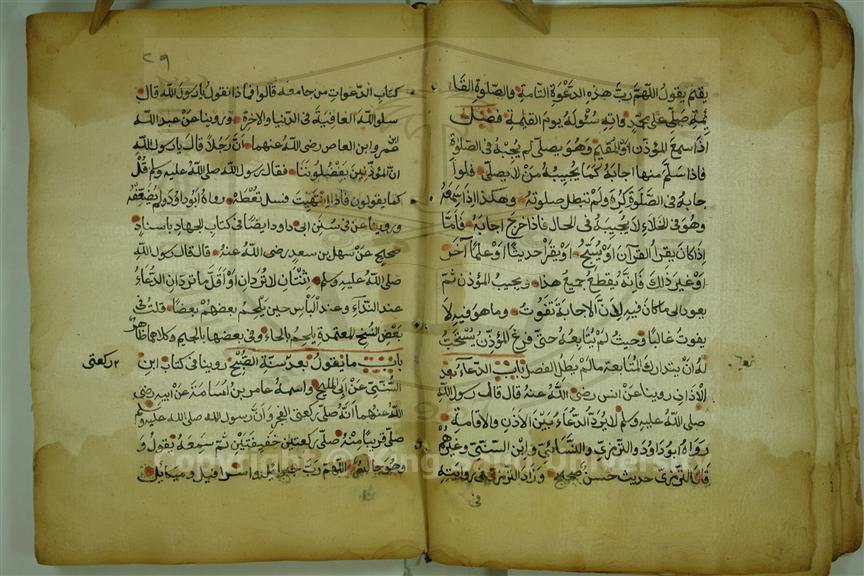 يقيم يقول اللهم رب هذه الدعوة التامة والصلوة القا
ئمة صل على محمد واته سئوله يوم القيمة فصل
اذا سمع المؤذن او المقيم وهو يصلى لم يجبه فى الصلوة
فاذا سلم منها اجابة كما يجيبه من لا يصلى فلو ا
جابه فى الصلوة كره ولم تبطل صلوته وهكذا اذا سمعه
وهو فى الخلاء لا يجيبه فى الحال فاذا خرج اجابه فاما
اذا كان يقرا القرآن او يسبح او يقرا حديثا او علما آخر
او غير ذلك فانه يقطع جميع هذا ويجيب المؤذن ثم
يعود الى ما كان فيه لان الاجابة تفوت وما هو فيه لا
يفوت غالبا وحيث لم يتابعه حتى فرغ المؤذن يستحب
له ان يتدارك المتابعة ما لم يطل الفصل باب الدعاء بعد
الاذان روينا عن انس رضى الله عنه قال قال رسول الله
صلى الله عليه وسلم لا يرد الدعاء بين الاذان والاقامة
رواه ابو داود والترمذى والنسائى وابن السنى وغيرهم
قال الترمذى حديث حسن صحيح وزاد الترمذى فى روايته
فى
٢٩
كتاب الدعوات من جامعه قالوا فماذا نقول يا رسول الله قال
سلوا الله العافية فى الدنيا والاخرة وروينا عن عبد الله
ابن عمرو ابن العاص رضى الله عنهما ان رجلا قال يا رسول الله
ان المؤذنين يفضلوننا فقال رسول الله صلى الله عليه وسلم قل
كما يقولون فاذا انتهيت فسل تعطه رواه ابو داود ولم يضعفه
وروينا عن فى سنن ابى داود ايضا فى كتاب الجهاد باسناد
صحيح عن سهل بن سعد رضى الله عنه قال قال رسول الله
صلى الله عليه وسلم اثنتان لا تردان او اقل ما تردان الدعاء
عند النداء وعند الباس حين يلحم بعضهم بعضا قلت فى
بعض النسخ المعتمدة يلحم بالحاء وفى بعضها بالجيم وكلاهما ظاهر
باب ما يقول بعد سنة الصبح روينا فى كتاب ابن
٢ ركعتى
السنى عن ابى المليح واسمه عامر بن اسامة عن ابيه رضى
الله عنهما انه صلى ركعتى الفجر وان رسول الله صلى الله عليه وسلم
صلى قريبا منه صلى ركعتين خفيفتين ثم سمعه يقول و
وهو جالس اللهم رب جبرائيل واسرافيل وميكائيل